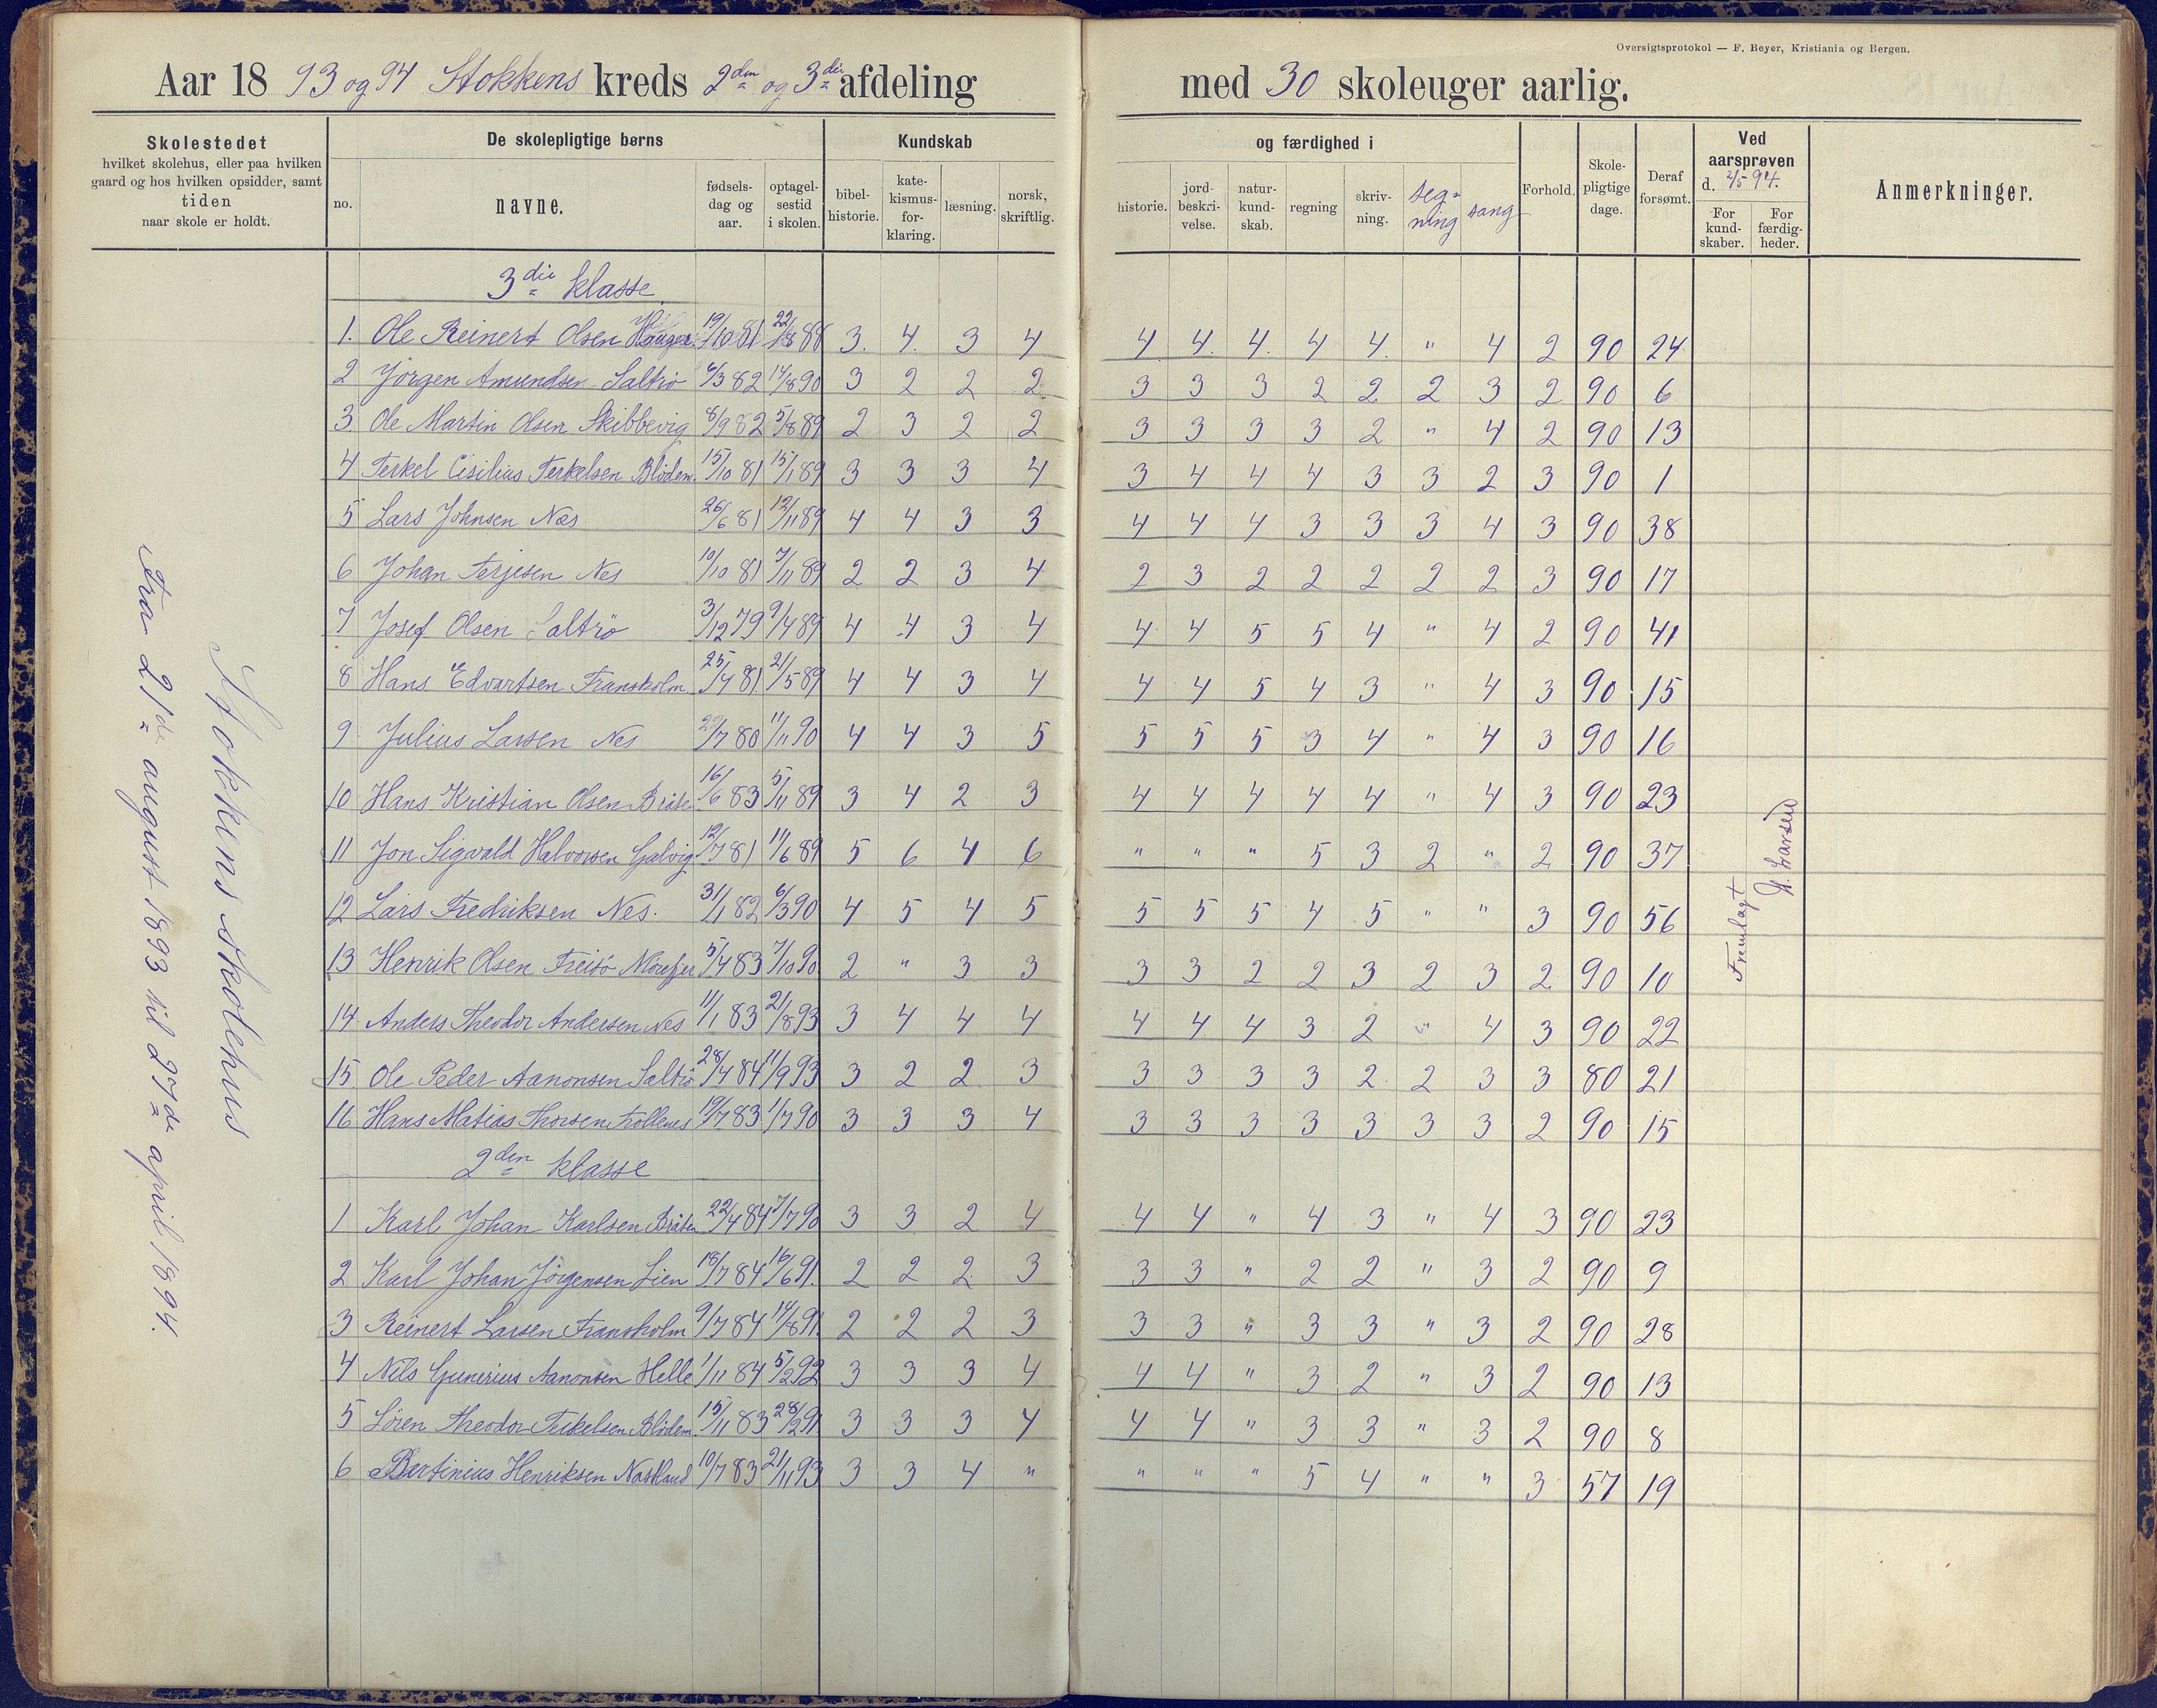 Oversigtsprotokol — F. Beyer, Kristiania og Bergen.
Aar 18 93 og 94 Stokkens kreds 2den og 3die afdeling med 30 skoleuger aarlig.
Skolestedet
hvilket skolehus, eller paa hvilken
gaard og hos hvilken opsidder, samt
tiden
naar skole er holdt.
De skolepligtige børns
no.
navne.
fødsels-
dag og
aar.
optagel-
sestid
i skolen.
Kundskab
bibel-
historie.
kate-
kismus-
for-
klaring.
læsning.
norsk,
skriftlig.
og færdighed i
historie.
jord-
beskri-
velse.
natur-
kund-
skab.
regning
skriv-
ning.
teg-
ning
sang
Forhold.
Skole-
pligtige
dage.
Deraf
forsømt.
Ved
aarsprøven
d. 2/5 94.
For
kund-
skaber.
For
færdig-
heder.
Anmerkninger.
Stokkens skolehus
Fra 21de august 1893 til 27de april 1894.
3die klasse
1. Ole Reinert Olsen 19/10 81 22/8 88 3. 4. 3 4 4 4. 4. 4 4. " 4 2 90 24
2 Jörgen Amundsen Saltrö 6/3 82 14/8 90 3 2 2 2 3 3 3 2 2 2 3 2 90 6
3 Ole Martin Olsen Skibbevig 8/9 82 5/8 89 2 3 2 2 3 3 3 3 2 " 4 2 90 13
4 Terkel Cisilius Terkelsen Blödem. 15/10 81 15/1 89 3 3 3 4 3 4 4 4 3 3 2 3 90 1
5 Lars Johnsen Næs 26/6 81 12/11 89 4 4 3 3 4 4 4 3 3 3 4 3 90 38
6 Johan Terjesen Nes 10/10 81 7/11 89 2 2 3 4 2 3 2 2 2 2 2 3 90 17
7 Josef Olsen Saltrö 3/12 79 9/4 89 4 4 3 4 4 4 5 5 4 " 4 2 90 41
8 Hans Edvartsen Fransholm 25/4 81 21/5 89 4 4 3 4 4 4 5 4 3 " 4 3 90 15
9 Julius Larsen Nes 29/7 80 11/11 90 4 4 3 5 5 5 5 3 4 " 4 3 90 16
10 Hans Kristian Olsen Bråten 16/6 83 5/11 89 3 4 2 3 4 4 4 4 4 " 4 3 90 23
11 Jon Sigvald Halvorsen Galvig 12/7 81 11/6 89 5 6 4 6 " " " 5 3 2 " 2 90 37
12 Lars Fredriksen Nes. 31/1 82 6/3 90 4 5 4 5 5 5 5 4 5 " " 3 90 56
13 Henrik Olsen 5/4 83 7/10 90 2 " 3 3 3 3 2 2 3 2 3 2 90 10
14 Anders Theodor Andersen Nes 11/1 83 21/8 93 3 4 4 4 4 4 4 3 2 " 4 3 90 22
15 Ole Peder Aanonsen Saltrö 28/4 84 11/9 93 3 2 2 3 3 3 3 3 2 2 3 3 80 21
16 Hans Matias Thorsen Trollenes 19/7 83 1/7 90 3 3 3 4 3 3 3 3 3 3 3 2 90 15
2den klasse
1 Karl Johan Karlsen Bråten 22/4 84 7/7 90 3 3 2 4 4 4 " 4 3 " 4 3 90 23
2 Karl Johan Jörgensen Lien 18/7 84 16/6 91. 2 2 2 3 3 3 " 2 2 " 3 2 90 9
3 Reinert Larsen Fransholm 9/7 84 14/8 91. 2 2 2 3 3 3 " 3 3 " 3 2 90 28
4 Nils Gunerius Aanonsen Helle 1/11 84 5/2 92 3 3 3 4 4 4 " 3 2 " 3 2 90 13
5 Sören Theodor Terkelsen Blödem. 15/11 83 28/2 91 3 3 3 4 4 4 " 3 3 " 3 2 90 8
6 Bertinius Henriksen 10/7 83 21/11 93 3 3 4 " " " " 5 4 " " 3 57 19
Fremlagt
Larsen